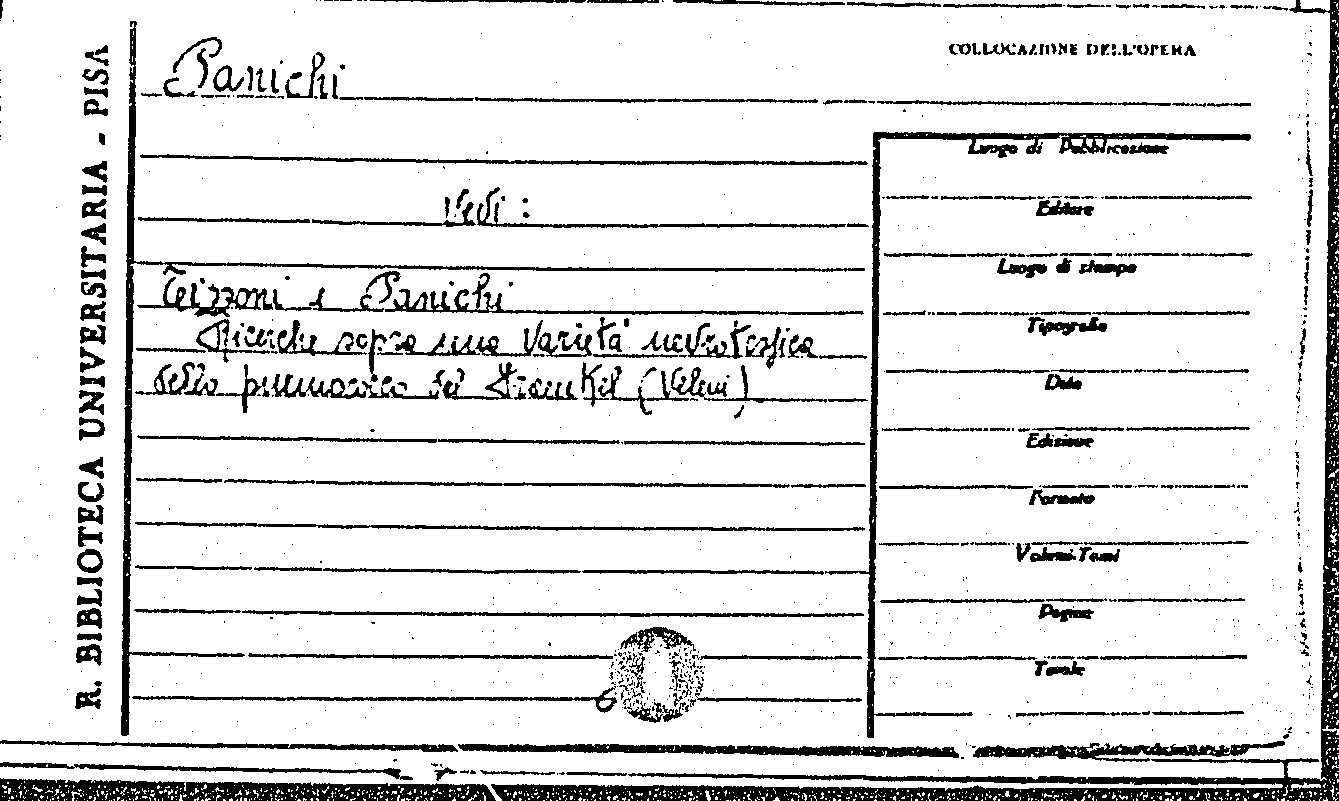 R. BIBLIOTECA UNIVERSITARIA - PISA
COLLOCAZIONE DELL'OPERA
Panichi
Vedi :
Tizzoni e Panichi
Ricerche sopra una varietà nevrotossica
dello pneumococco del Fraenkel (Veleni)
Luogo di Pubblicazione
Editore
Luogo di stampa
Tipografo
Data
Edizione
Formato
Volumi-Tomi
Pagine
Tavole